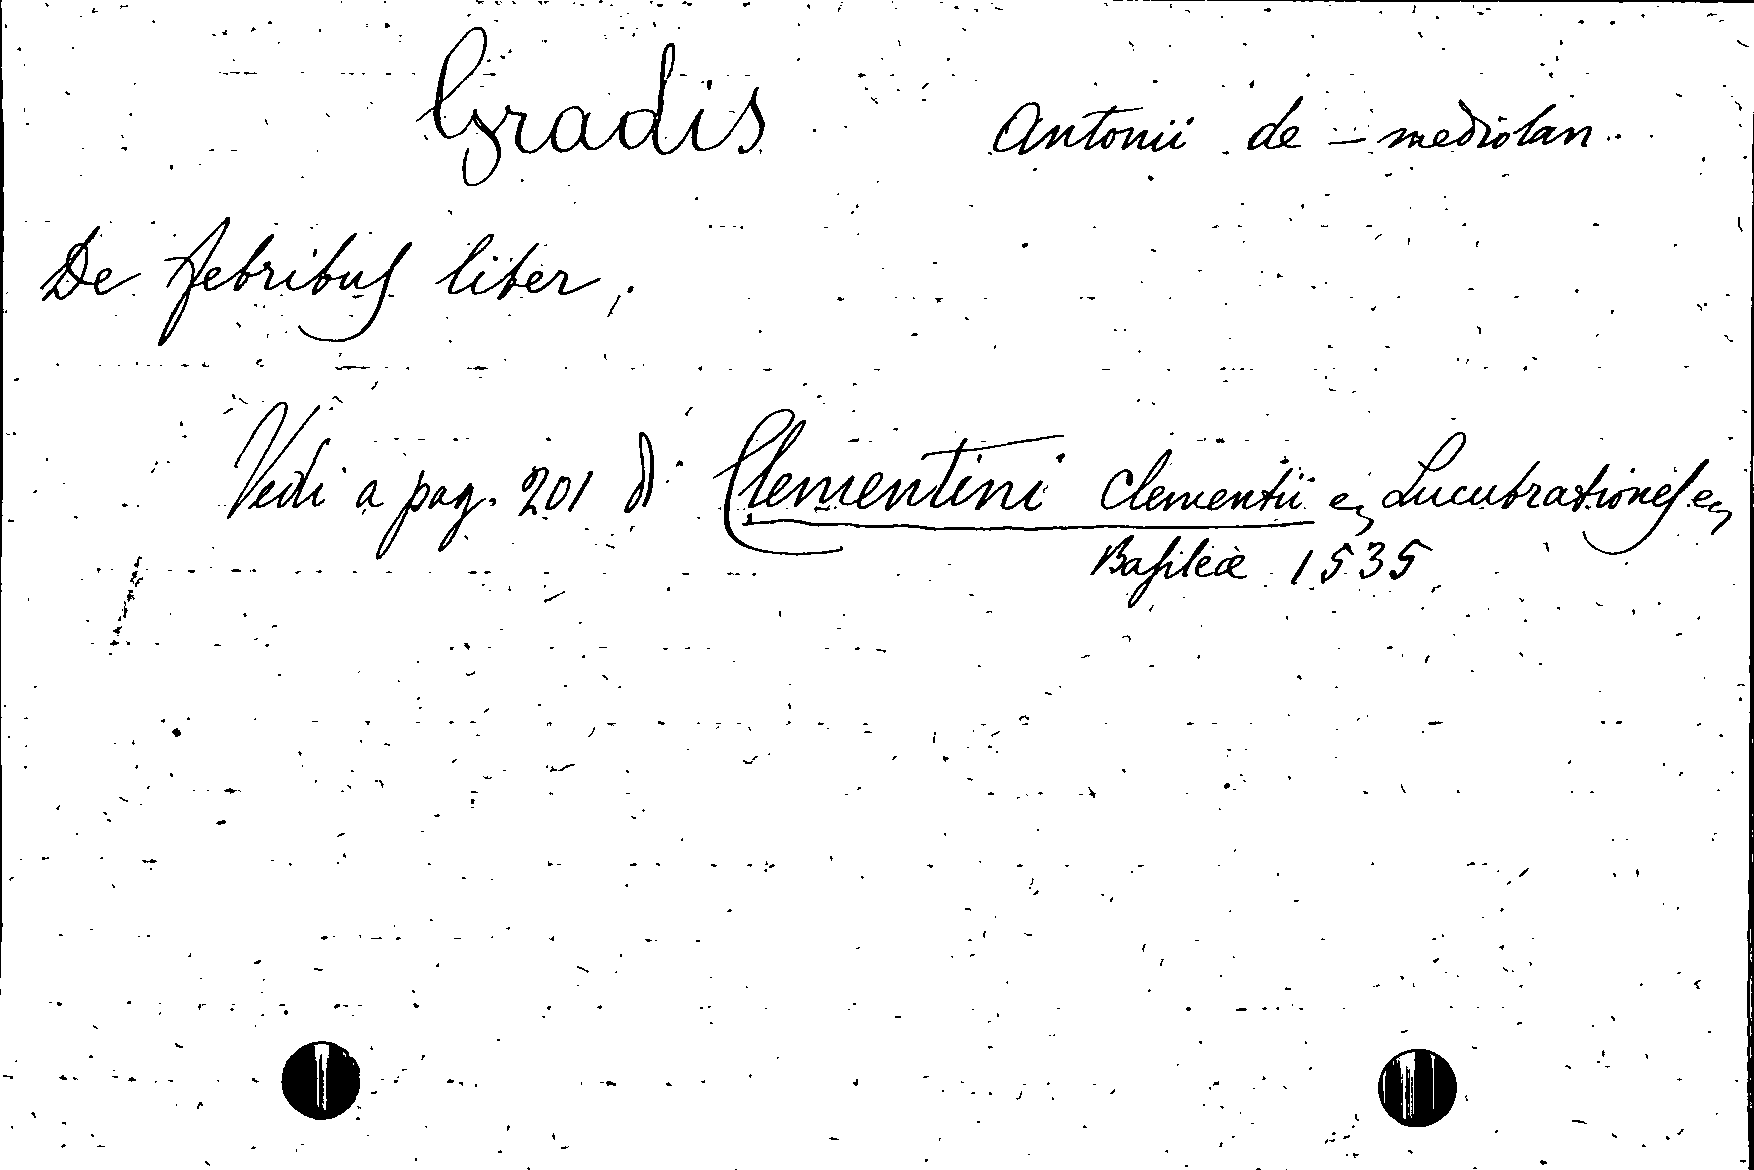 Gradis Antonii de — mediolan.
De febribus liber,
Vedi a pag. 201 di Clementini Clementii ej Lucubrationes ej
Basileæ 1535